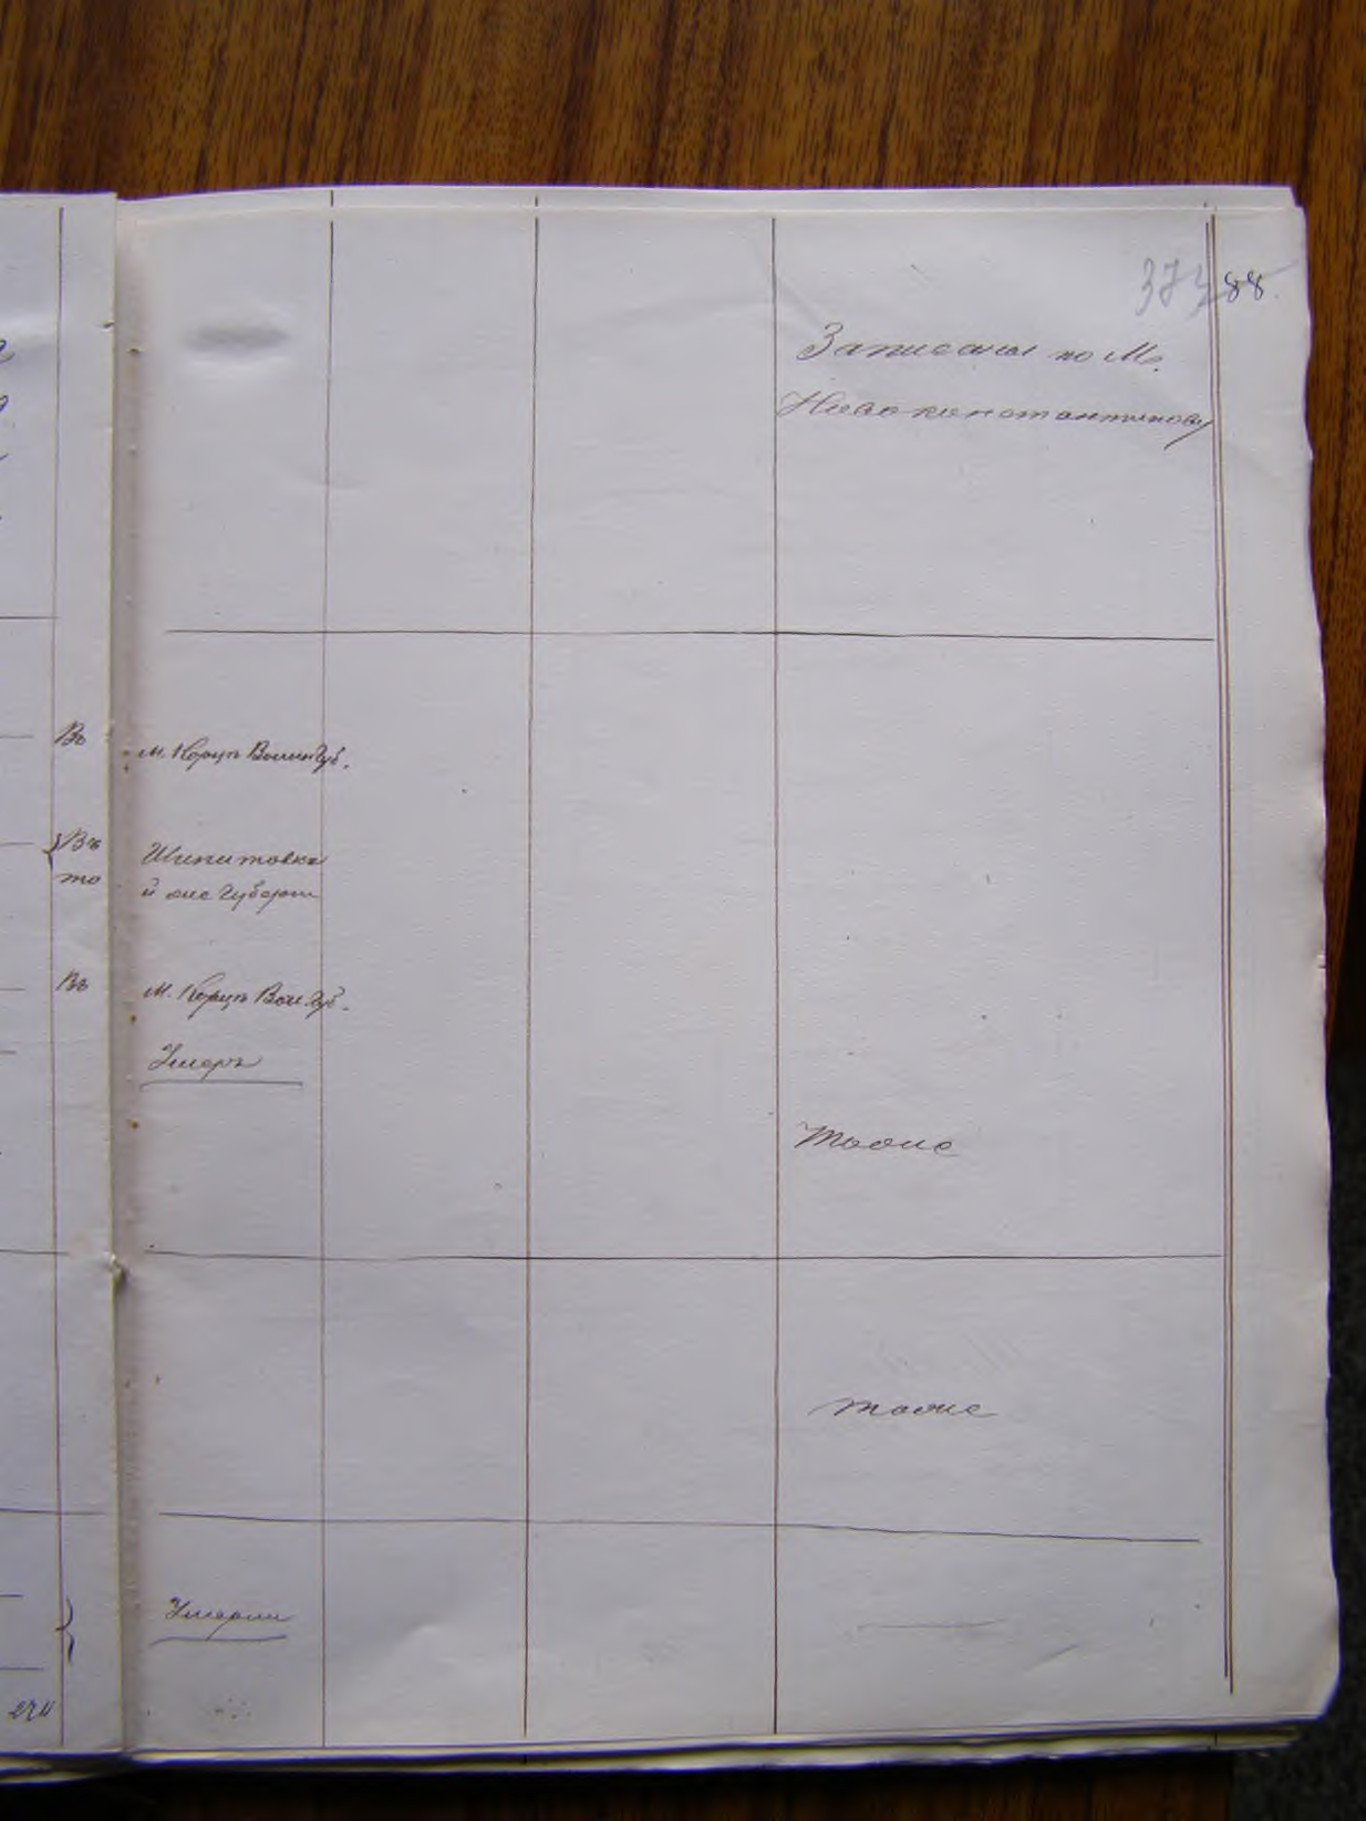 374 88.
Записаны по М.
Новоконстантинову
Въ м. Корцъ Волын Губ.
Въ Шепитовка
то й оже Губерни
Въ м. Корцъ Вол. Губ.
Умеръ
Тоже
тоже
Умерли